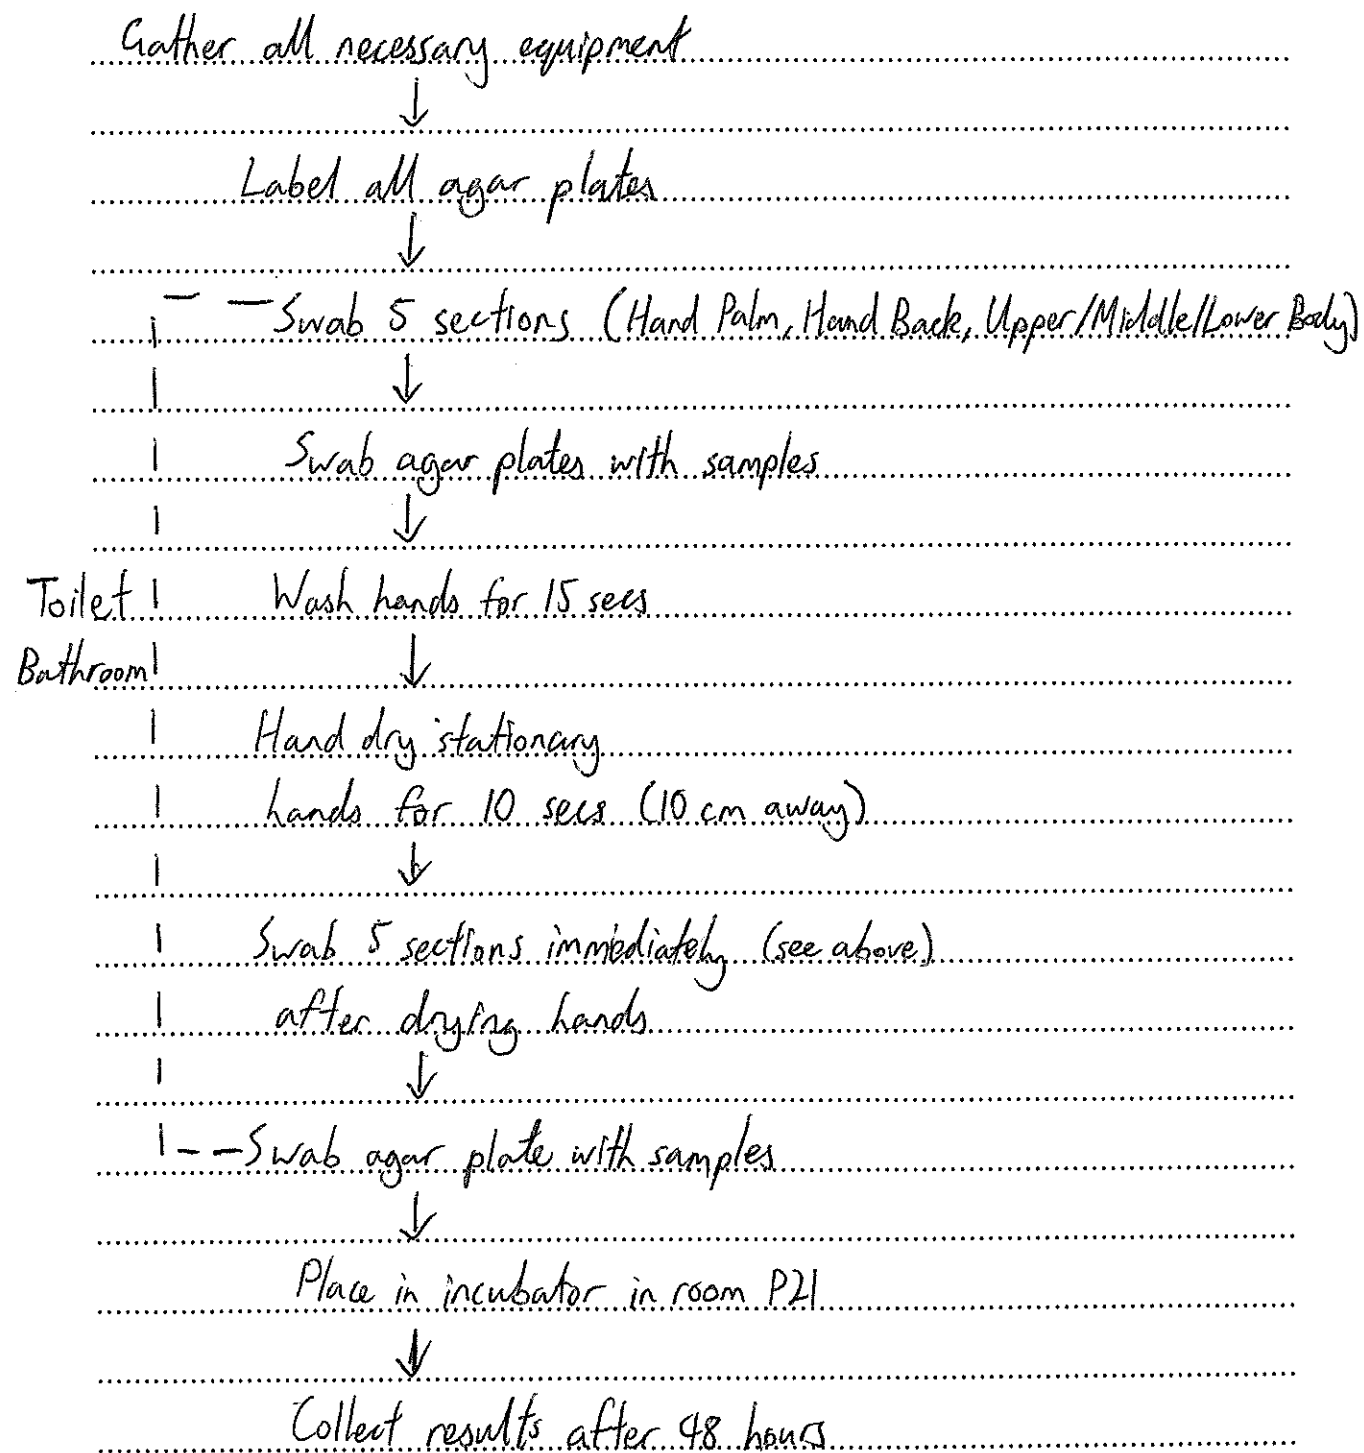 Gather all necessary equipment
↓
Label all agar plates
↓
Swab 5 sections (Hand Palm, Hand Back, Upper/Middle/Lower Body)
↓
Swab agar plates with samples
↓
Toilet Wash hands for 15 secs
Bathroom ↓
Hand dry stationary
hands for 10 secs (10 cm away)
↓
Swab 5 sections immediately (see above)
after drying hands
↓
Swab agar plate with samples
↓
Place in incubator in room P21
↓
Collect results after 48 hours